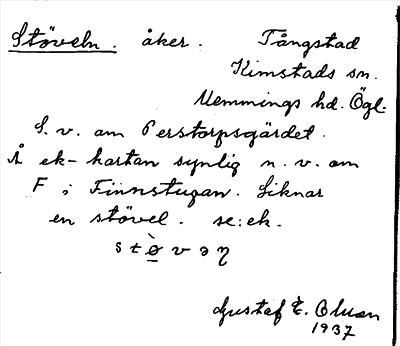 Stöveln. åker. Tångstad
Kimstads sn.
Memmings hd. Ögl.
S. v. om Perstorpsgärdet.
Å ek-kartan synlig n. v. om
F i Finnstugan. Liknar
en stövel. se: ek.
s t ø̀ v ə ŋ
Gustaf E. Olsson
1937